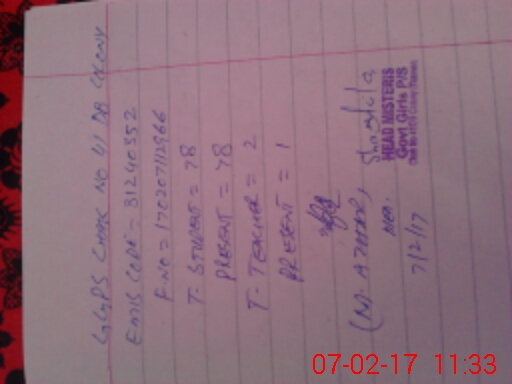 GGPS CHAK NO 41 DB COLONY
EMIS CODE = 31240352
F.NO = 170207112966
T. STUDENT = 78
PRESENT = 78
T. TEACHER = 2
PRESENT = 1
Shamshila
HEAD MISTERIS
Govt Girls P/S
7/2/17
07-02-17 11:33